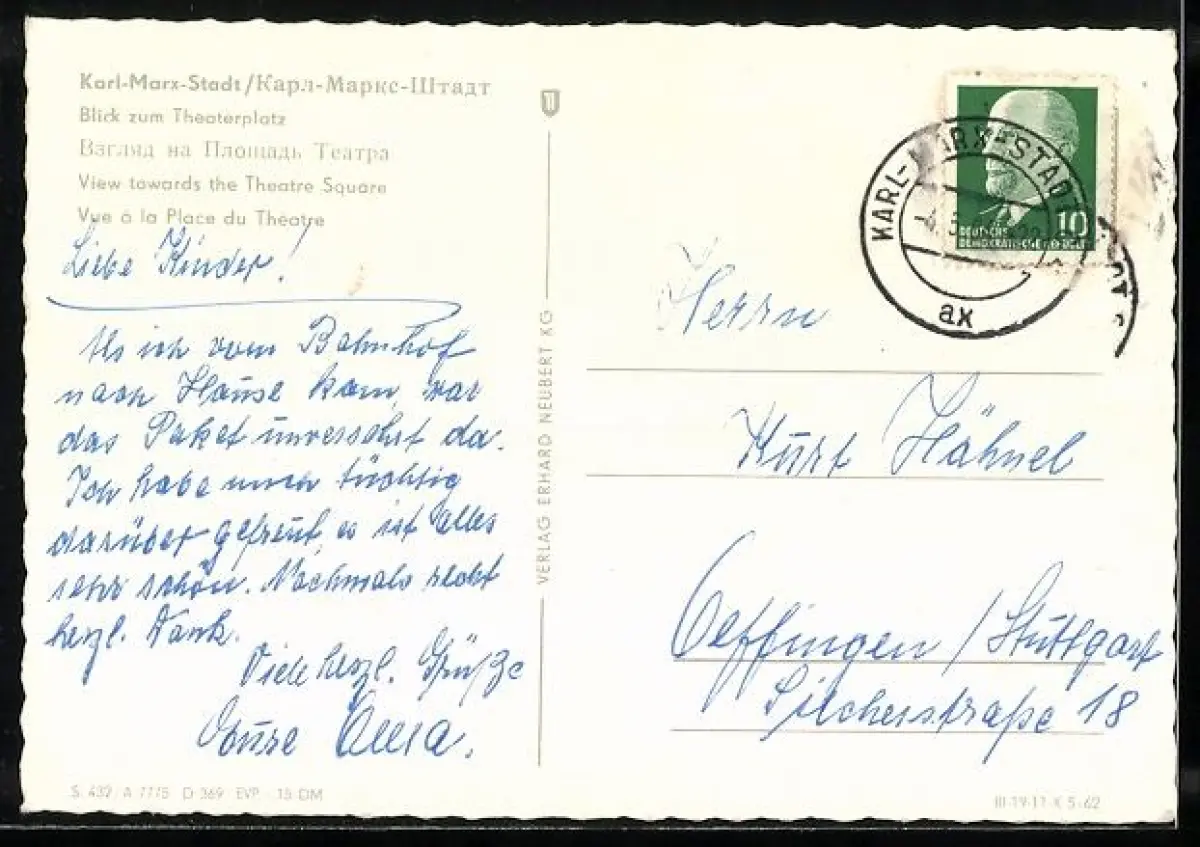 Karl-Marx-Stadt/Карл-Маркс-Штадт
Blick zum Theaterplatz
Взгляд на Площадь Театра
View towards the Theatre Square
Vue à la Place du Theatre
Liebe Kinder!
Als ich vom Bahnhof
nach Hause kam, war
das Paket unversehrt da.
Ich habe mich tüchtig
darüber gefreut, es ist alles
sehr schön. Nochmals recht
herzl. Dank.
Viele herzl. Grüße
Eure Oma.
S 432 A 7775 D 369 EVP -.15 DM
VERLAG ERHARD NEUBERT KG
KARL-MARX-STADT
ax
10
DEUTSCHE
DEMOKRATISCHE REPUBLIK
Herrn
Kurt Hähnel
Oeffingen/Stuttgart
Silcherstraße 18
III-19-11 K 5-62